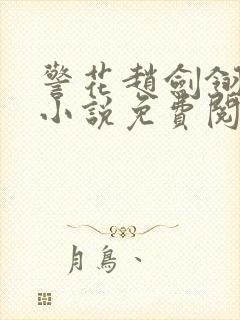 警花趙劍釵
小說免費閱
月鳥、